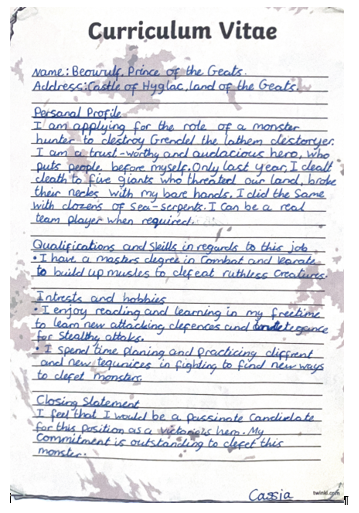 Curriculum Vitae
Name: Beowulf, Prince of the Geats.
Address: Castle of Hyglac, land of the Geats.
Personal Profile
I am applying for the role of a monster
hunter to destroy Grendel the
I am a trust-worthy and audacious hero, who
puts people before myself. Only last year I dealt
death to five giants who threated our land, broke
their necks with my bare hands. I did the same
with dozens of Sea-Serpents. I can be a real
team player when required.
Qualifications and Skills in regards to this job
• I have a masters degree in Combat and karate
to build up musles to defeat ruthless creatures.
Intrests and hobbies
• I enjoy reading and learning in my freetime
to learn new attacking defences and
for Stealthy attaks.
• I spend time planing and practicing diffrent
and new tequnices in fighting to find new ways
to defet monsters.
Closing Statement
I feel that I would be a passinate Candidate
for this position as a victorious hero. My
Commitment is outstanding to defet this
monster.
Cassia
twinkl.com